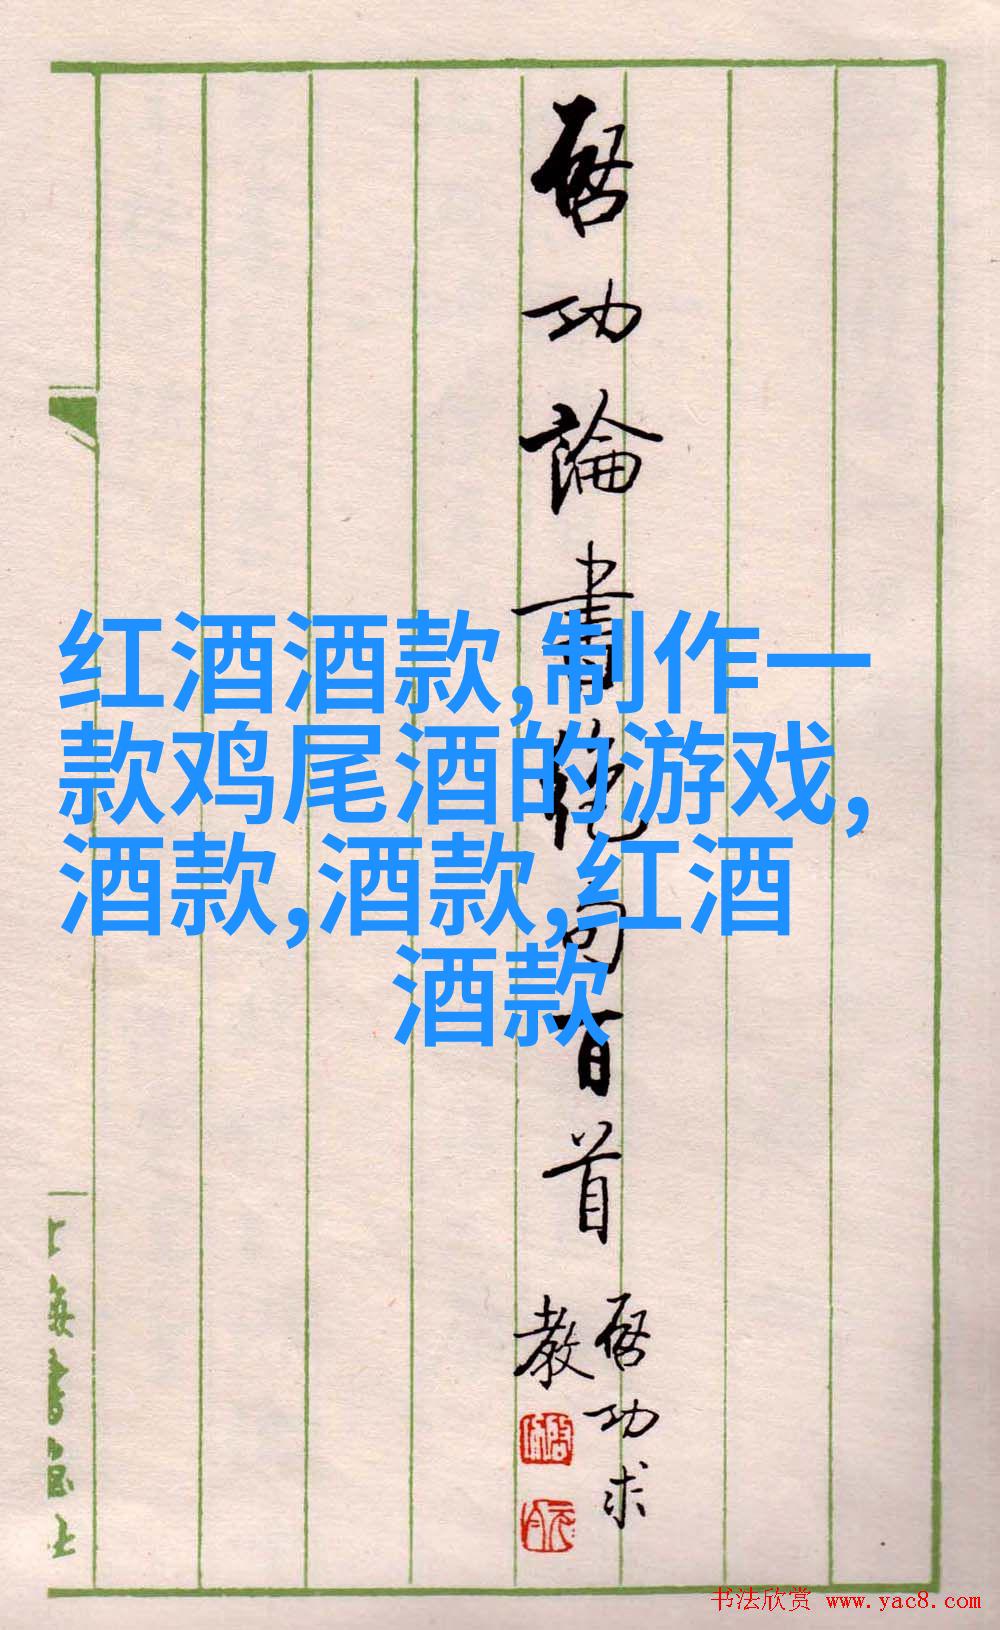 启功論書絶句百首
启功求
教
红酒酒款,制作一
款鸡尾酒的游戏,
酒款,酒款,红酒
酒款
上海書画社
书法欣赏 www.yac8.com